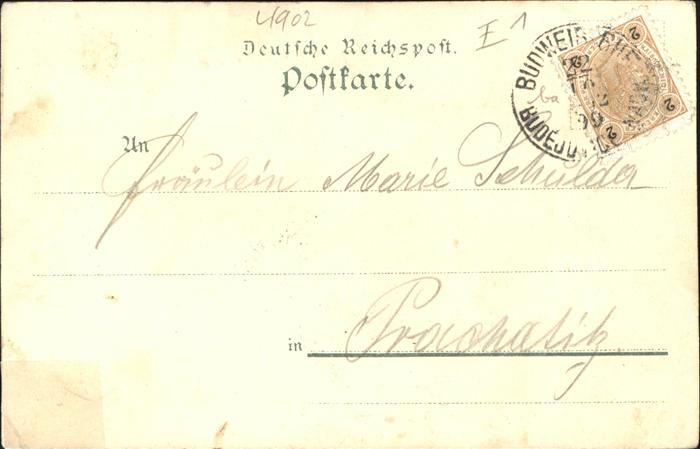 4902
E 1
Deutsche Reichspost.
Postkarte.
BUDWEIS
BUDĚJO
99
2
2
2
2
ba
An Fräulein Marie Schulda
in Prachatitz.